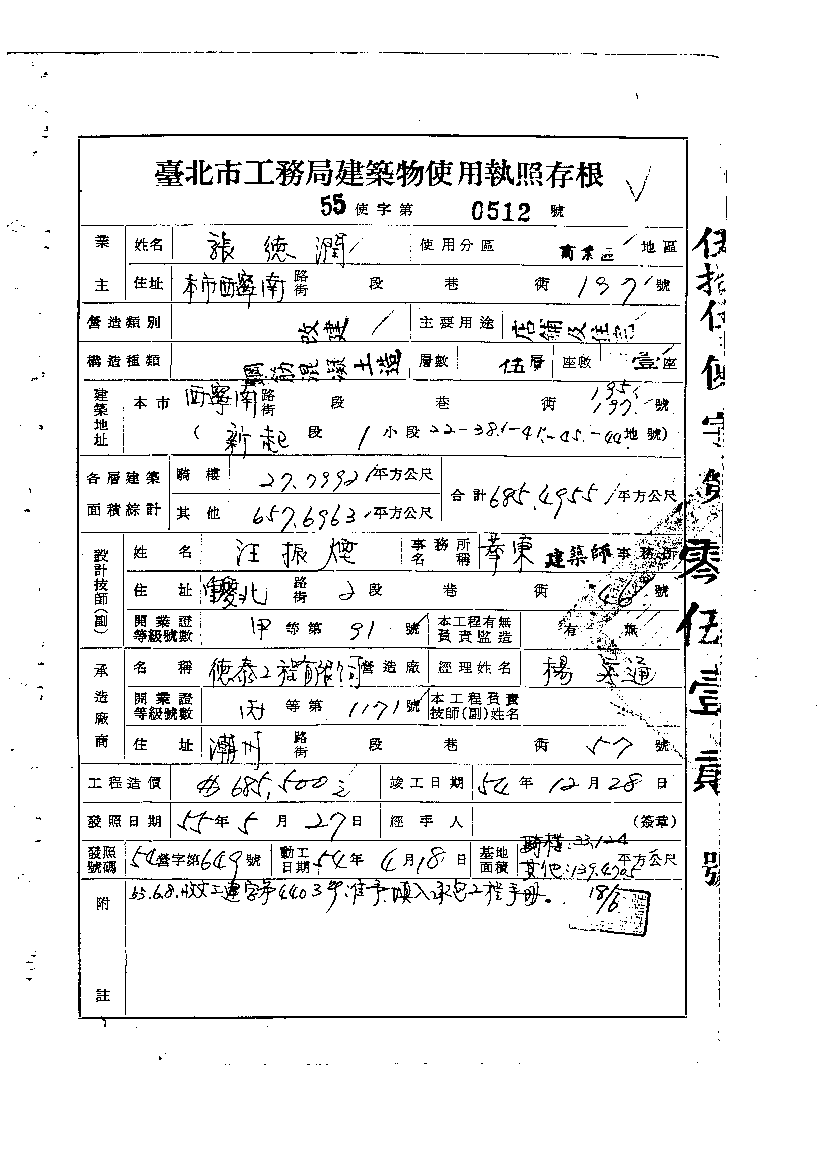 臺北市工務局建築物使用執照存根
55使字第 0512 號
業主 姓名 張德潤 使用分區 商業區 地區
住址 本市西寧南路街 段 巷 衖 197 號
營造類別 改建 主要用途 店舖及住宅
構造種類 鋼筋混凝土造 層數 伍層 座數 壹座
建築地址 本市 西寧南路街 段 巷 衖 195 197 號
(新起段 1 小段 22-38.1-41.-45.-44地號)
各層建築面積綜計 騎樓 27.7992平方公尺 合計685.4955平方公尺
其他 657.6963平方公尺
設計技師(副) 姓名 汪振煙 事務所名稱 華東建築師事務所
住址 重慶北路街 2段 巷 衖 46 號
開業證等級號數 甲等第 91 號 本工程有無負責監造 有 無
承造廠商 名稱 德泰工程有限公司營造廠 經理姓名 楊 通
開業證等級號數 丙等第 1171號 本工程負責技師(副)姓名
住址 潮州路街 段 巷 衖 57 號
工程造價 685,500元 竣工日期 54年12月28日
發照日期 55年5月27日 經手人 (簽章)
發照號碼 54營字第649號 動工日期 54年4月18日 基地面積 騎樓:33.124 其他:139.4705平方公尺
附註 工建字第4403號准予填入承包工程手冊。
18/6
伍拾伍使字第零伍壹貳號